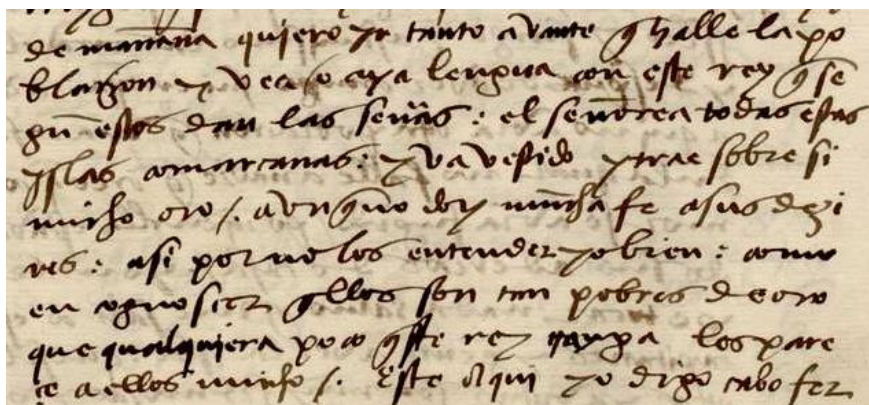 de mañana quiero yr tanto avante q halle la po
blaçion y vea o aya lengua con este rey q se
gun estos dan las señas : el señorea todas estas
yslas comarcanas : y va vestido y trae sobre si
mucho oro /. avnq no doy mucha fe a sus dezi
res : asi por no los entender yo bien : como
en cognoscer qllos son tan pobres de oro
que qualquiera poco qste rey trayga los pare
ce a ellos mucho /. Este a qui yo digo cabo fer